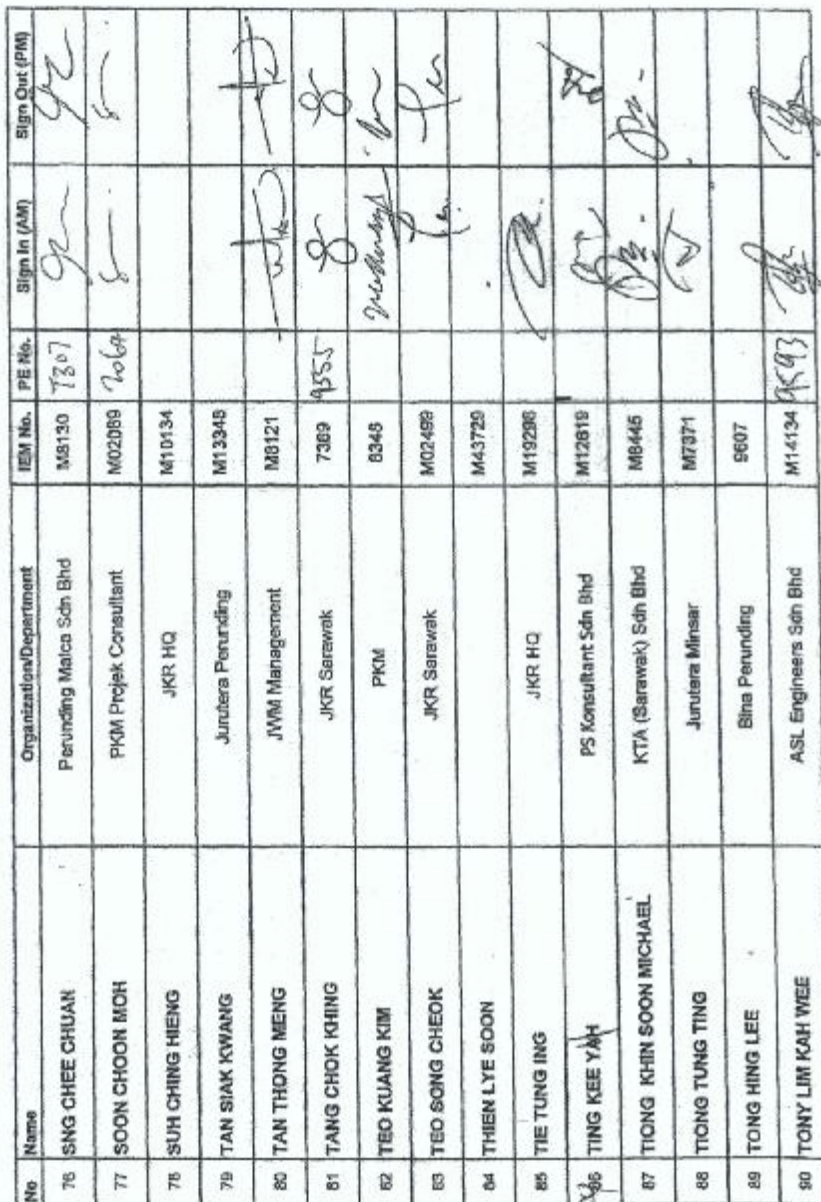 No Name Organization/Department IEM No. PE No. Sign In (AM) Sign Out (PM)
76 SNG CHEE CHUAN Perunding Malca Sdn Bhd M8130 7307
77 SOON CHOON MOH PKM Projek Consultant M02089
78 SUH CHING HIENG JKR HQ M10134
79 TAN SIAK KWANG Jurutera Perunding M13348
80 TAN THONG MENG JWM Management M8121
81 TANG CHOK KHING JKR Sarawak 7389 9555
82 TEO KUANG KIM PKM 8348
83 TEO SONG CHEOK JKR Sarawak M02499
84 THIEN LYE SOON M43729
85 TIE TUNG ING JKR HQ M19298
86 TING KEE YAH PS Konsultant Sdn Bhd M12619
87 TIONG KHIN SOON MICHAEL KTA (Sarawak) Sdn Bhd M8445
88 TIONG TUNG TING Jurutera Minsar M7371
89 TONG HING LEE Bina Perunding 9607
90 TONY LIM KAH WEE ASL Engineers Sdn Bhd M14134 9593